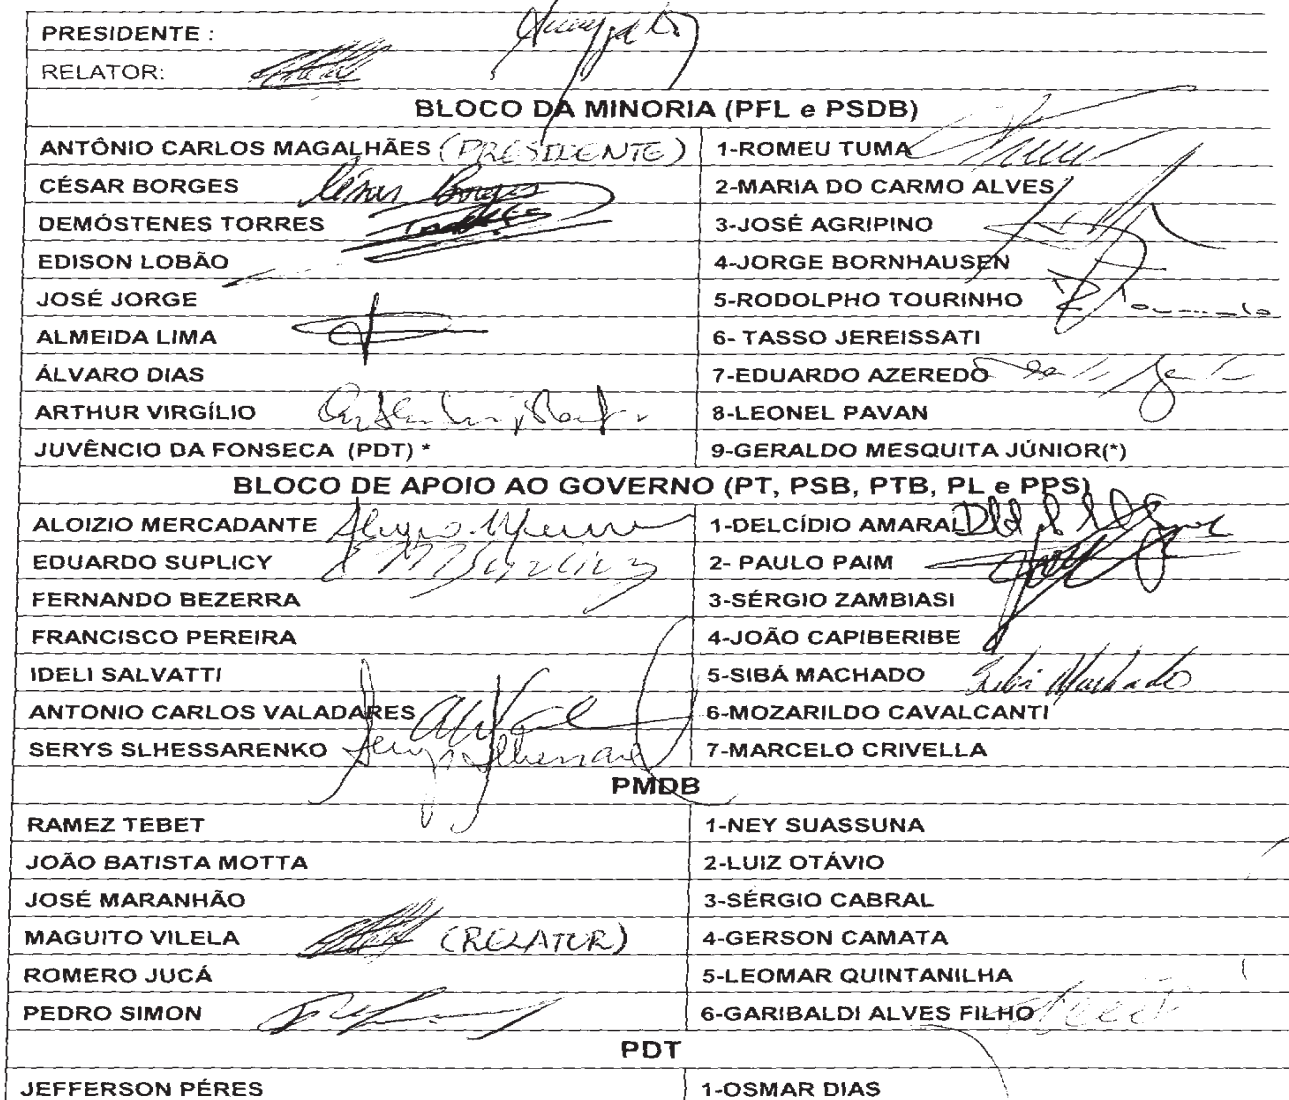 PRESIDENTE :
RELATOR:
BLOCO DA MINORIA (PFL e PSDB)
ANTÔNIO CARLOS MAGALHÃES (PRESIDENTE) 1-ROMEU TUMA
CÉSAR BORGES César Borges 2-MARIA DO CARMO ALVES
DEMÓSTENES TORRES 3-JOSÉ AGRIPINO
EDISON LOBÃO 4-JORGE BORNHAUSEN
JOSÉ JORGE 5-RODOLPHO TOURINHO
ALMEIDA LIMA 6- TASSO JEREISSATI
ÁLVARO DIAS 7-EDUARDO AZEREDO
ARTHUR VIRGÍLIO 8-LEONEL PAVAN
JUVÊNCIO DA FONSECA (PDT) * 9-GERALDO MESQUITA JÚNIOR(*)
BLOCO DE APOIO AO GOVERNO (PT, PSB, PTB, PL e PPS)
ALOIZIO MERCADANTE 1-DELCÍDIO AMARAL
EDUARDO SUPLICY 2- PAULO PAIM
FERNANDO BEZERRA 3-SÉRGIO ZAMBIASI
FRANCISCO PEREIRA 4-JOÃO CAPIBERIBE
IDELI SALVATTI 5-SIBÁ MACHADO Sibá Machado
ANTONIO CARLOS VALADARES 6-MOZARILDO CAVALCANTI
SERYS SLHESSARENKO 7-MARCELO CRIVELLA
PMDB
RAMEZ TEBET 1-NEY SUASSUNA
JOÃO BATISTA MOTTA 2-LUIZ OTÁVIO
JOSÉ MARANHÃO 3-SÉRGIO CABRAL
MAGUITO VILELA (RELATOR) 4-GERSON CAMATA
ROMERO JUCÁ 5-LEOMAR QUINTANILHA
PEDRO SIMON 6-GARIBALDI ALVES FILHO
PDT
JEFFERSON PÉRES 1-OSMAR DIAS